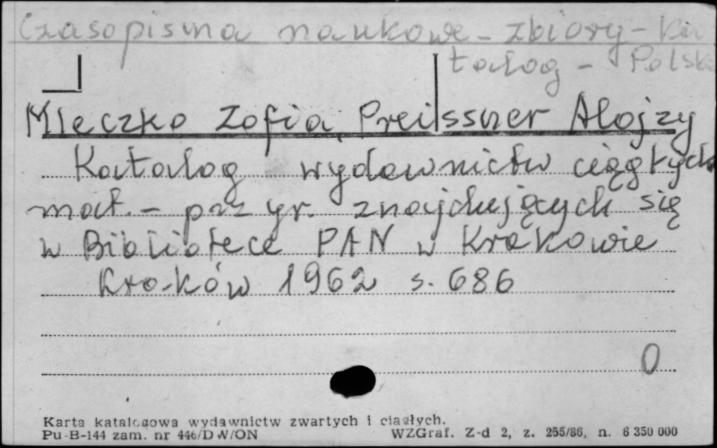 Czasopisma naukowe - zbiory - Ka
talog - Polska
Mleczko Zofia, Preissner Alojzy
Katalog wydawnictw ciągłych
mat. - przyr. znajdujących się
w Bibliotece PAN w Krakowie
Kraków 1962 s. 686
0
Karta katalogowa wydawnictw zwartych i ciągłych.
Pu-B-144 zam. nr 446/DW/ON WZGraf. Z-d 2, z. 255/86, n. 6 350 000